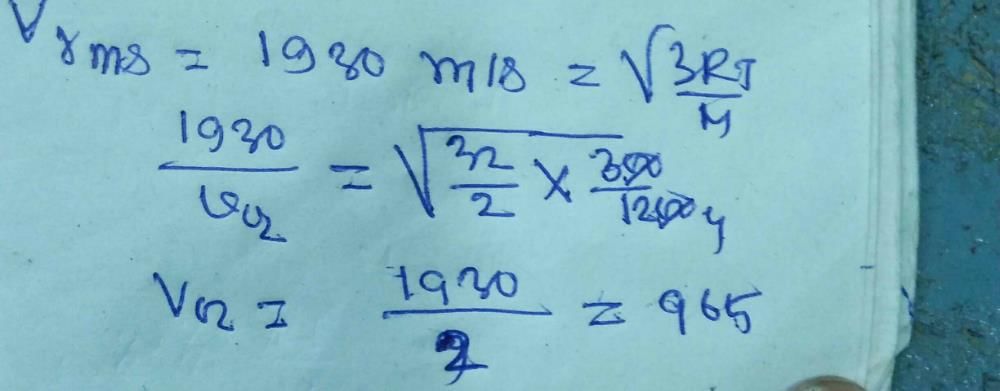 Vrms = 1930 m/s = √3RT/M
1930/vO2 = √32/2 × 300/1200 4
VO2 = 1930/2 = 965